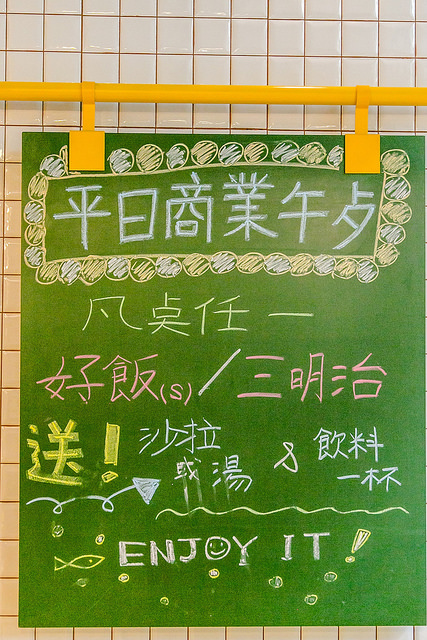 平日商業午歺
凡奌任一
好飯(s)/三明治
送!
沙拉
或湯
&
飲料
一杯
ENJOY IT!